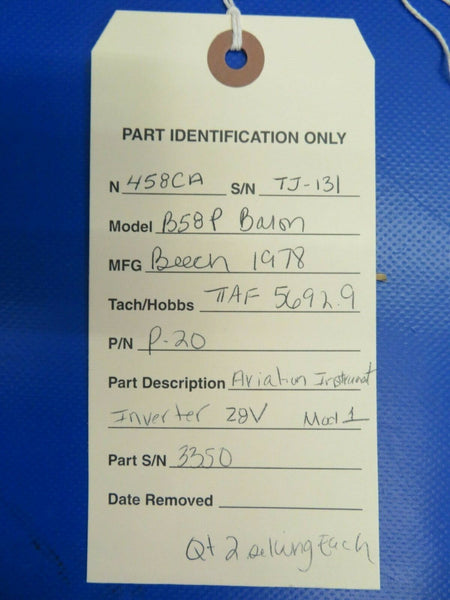 PART IDENTIFICATION ONLY
N 458CA S/N TJ-131
Model B58P Baron
MFG Beech 1978
Tach/Hobbs TTAF 5692.9
P/N P-20
Part Description Aviation Instrument
Inverter 28V Mod 1
Part S/N 3350
Date Removed
Qt 2 selling Each